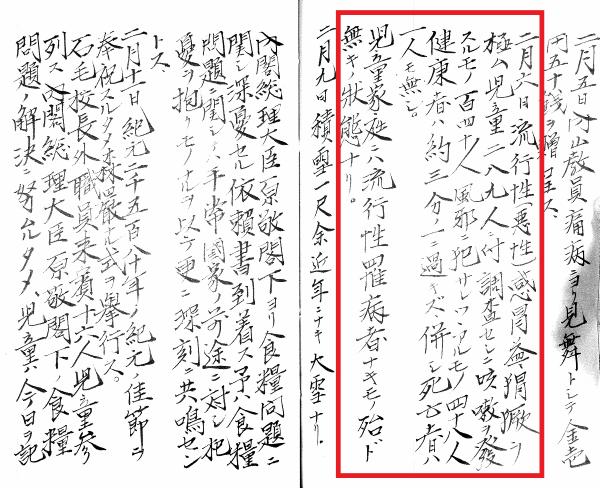 二月五日内山教員痛病ニヨリ見舞トシテ金壱
円五十銭ヲ贈呈ス、
二月六日流行性(悪性)感冒益〻猖獗ヲ
極ム児童二八九人ニ付調査セシニ咳嗽ヲ発
スルモノ百四十人風邪ニ犯サレツヽアルモノ四十八人
健康者ハ約三分ノ一ニ過ギズ、併シ死亡者ハ
一人モ無シ。
児童家庭ニハ流行性罹病者ナキモノ殆ド
無キノ状態ナリ。
二月九日積雪一尺余近年ニナキ大雪ナリ。
内閣総理大臣原敬閣下ヨリ食糧問題ニ
関シ深憂セル依頼書到着ス予ハ食糧
問題ニ関シテハ平常国家ノ前途ニ対シ杞
憂ヲ抱クモノナルヲ以テ更ニ深刻ニ共鳴セン
トス、
二月十一日紀元二千五百八十年ノ紀元佳節ヲ
奉祝スルタメ森厳ナル式ヲ挙行ス。
石毛校長外職員来賓十六人児童参
列ス内閣総理大臣原敬閣下ノ食糧
問題ノ解決ニ努ムルタメ、児童ハ今日ヲ記